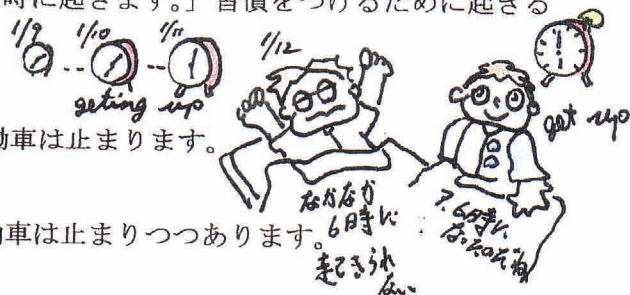 時に起きます。」習慣をつけるために起きる
1/9 1/10 1/11 1/12
geting up
get up
動車は止まります。
動車は止まりつつあります。
なかなか
6時に
起きられ
ない
?.6時に